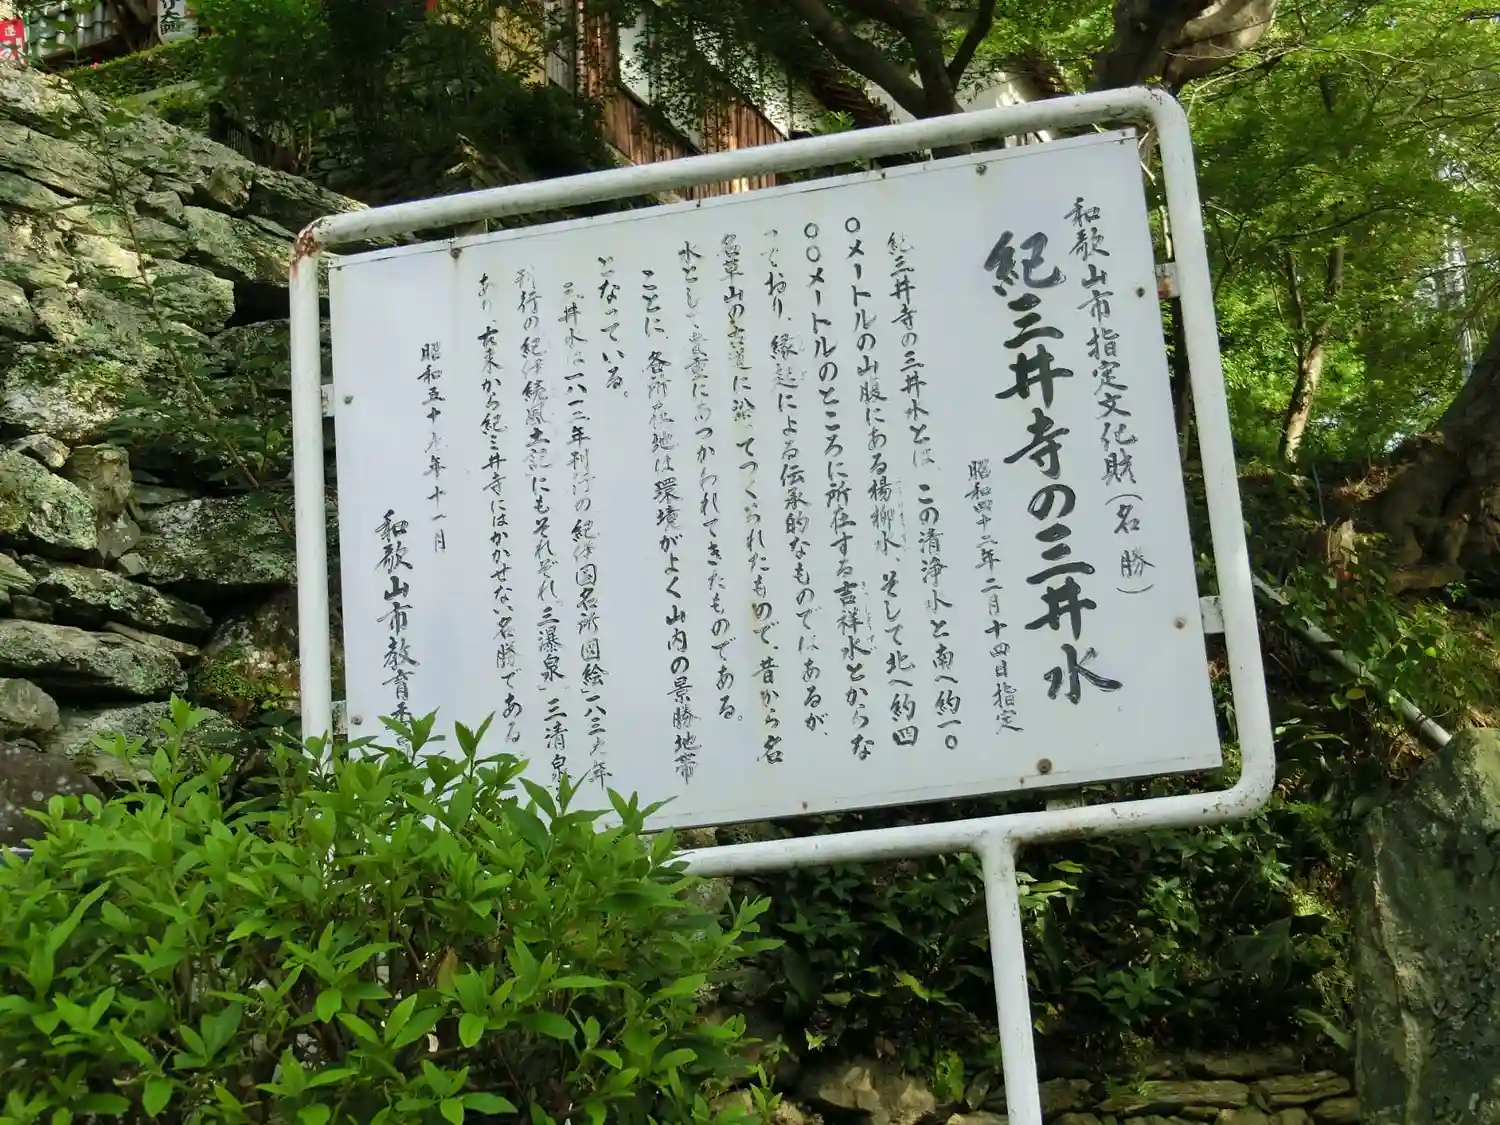 和歌山市指定文化財(名勝)
紀三井寺の三井水
昭和四十二年二月十四日指定
紀三井寺の三井水とは、この清浄水と南へ約一〇
〇メートルの山腹にある楊柳水、そして北へ約四
〇〇メートルのところに所在する吉祥水とからな
っており、縁起による伝承的なものではあるが、
名草山の古道に沿ってつくられたもので、昔から名
水として貴重にあつかわれてきたものである。
ことに、各所在地は環境がよく山内の景勝地帯
となっている。
三井水は一八一二年刊行の紀伊国名所図絵一八三九年
刊行の紀伊続風土記にもそれぞれ「三瀑泉」「三清泉
あり、古来から紀三井寺にはかかせない名勝である
昭和五十 年十一月
和歌山市教育委